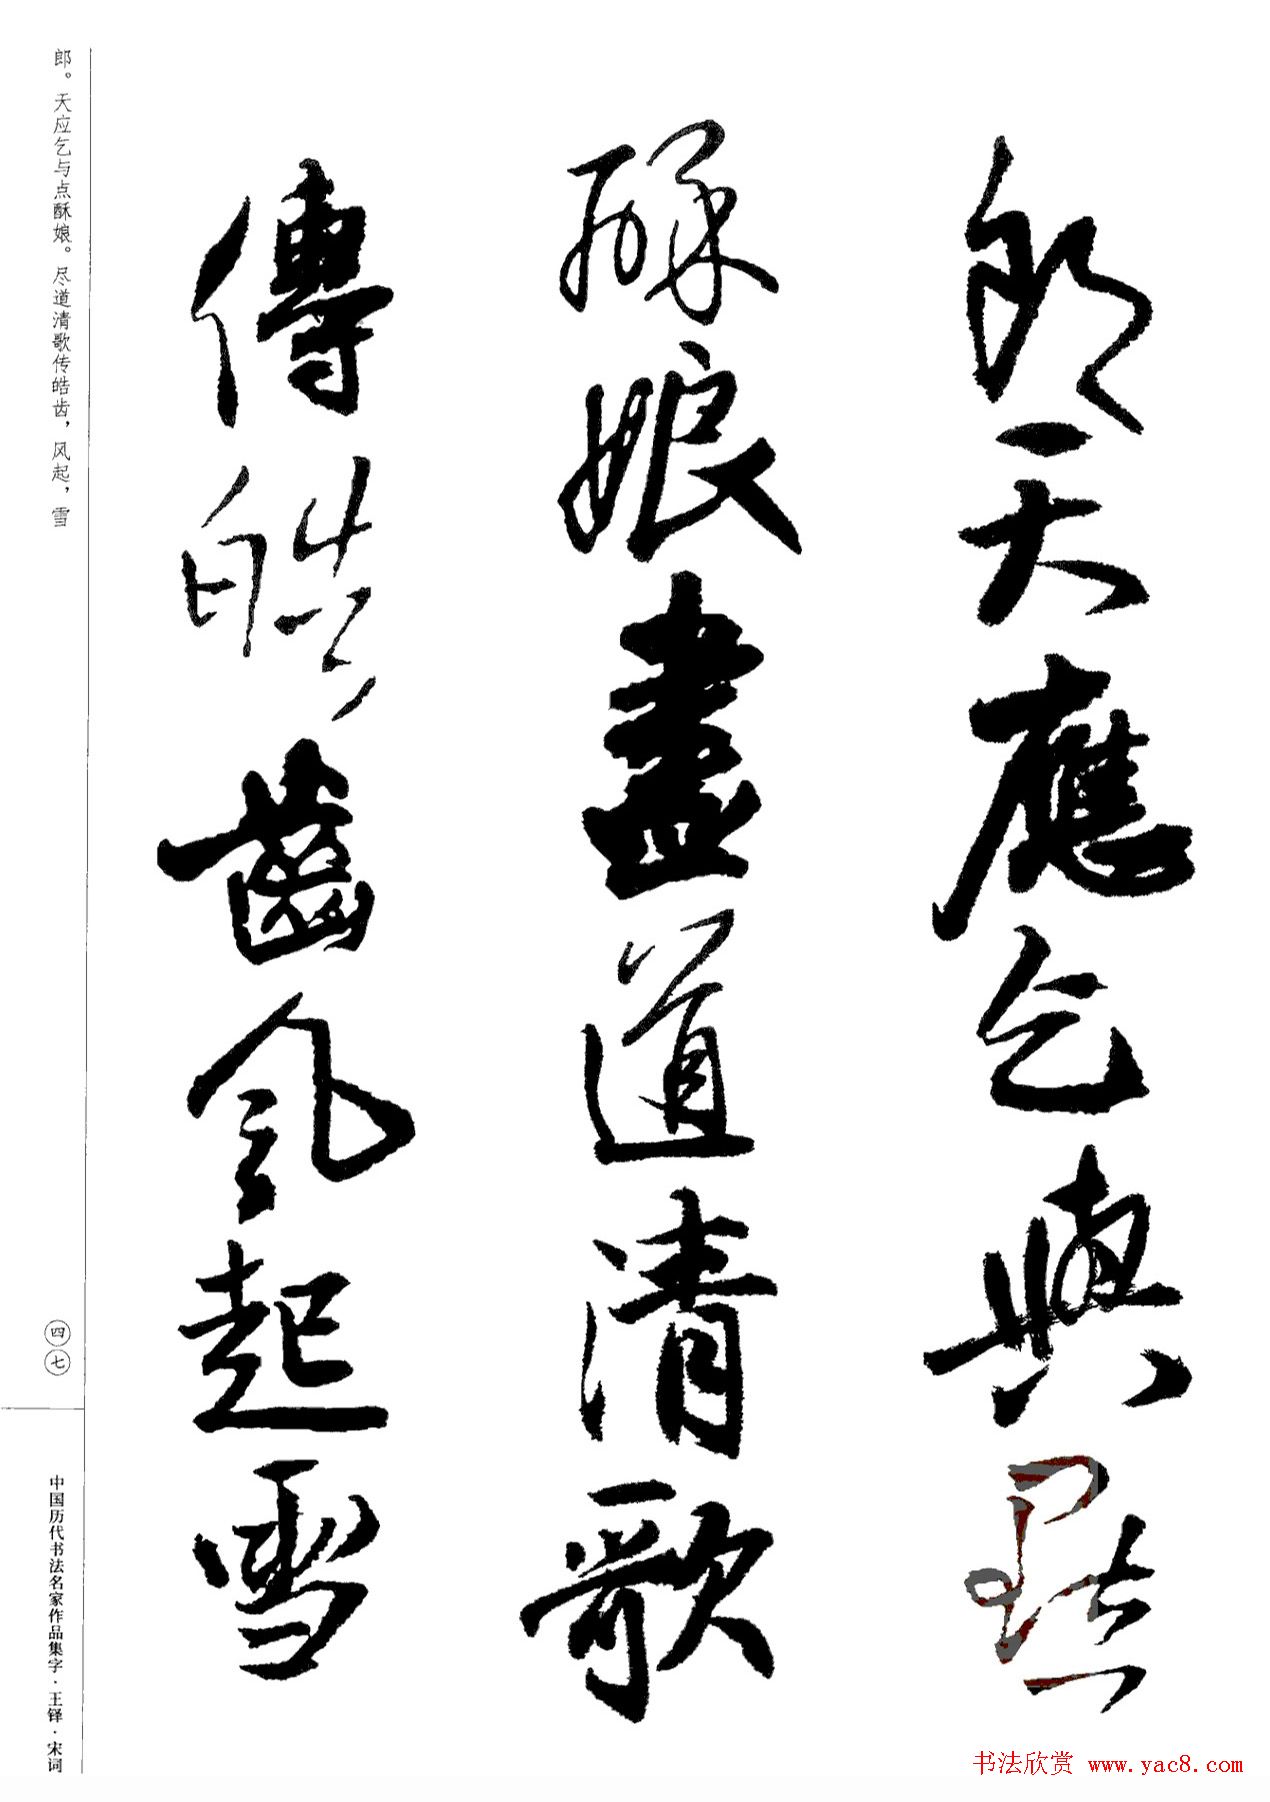 郎天應乞與點
酥娘盡道清歌
傳皓齒風起雪
郎。天应乞与点酥娘。尽道清歌传皓齿，风起，雪
四七
中国历代书法名家作品集字·王铎·宋词
书法欣赏 www.yac8.com